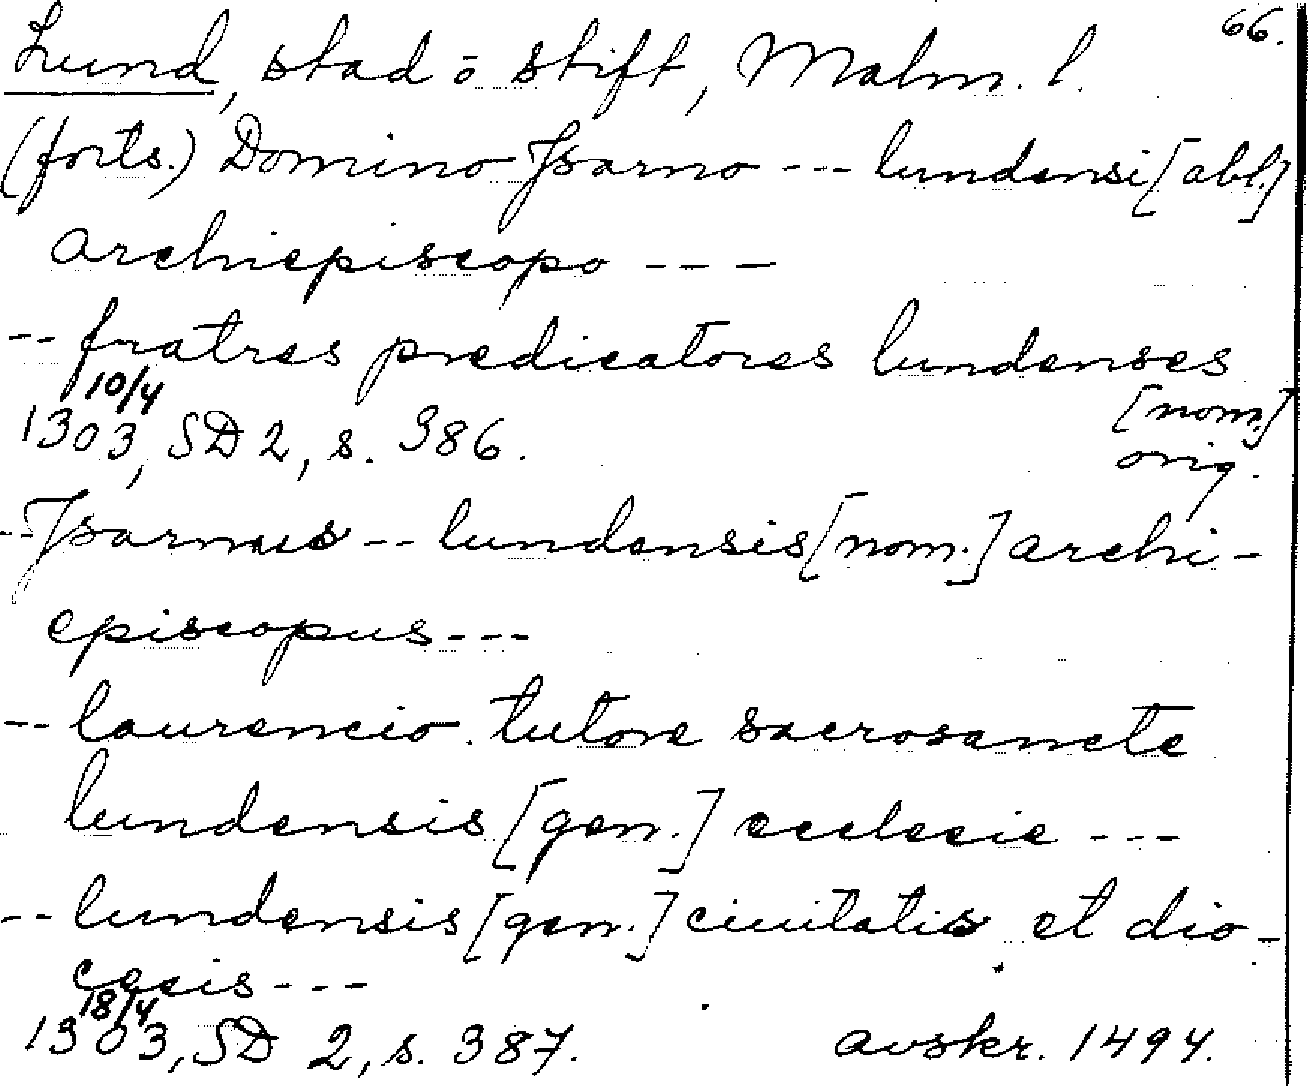 66.
Lund, stad o stift, Malm. l.
(forts.) Domino Jsarno --- lundensi [abl.]
archiepiscopo ---
-- fratres predicatores lundenses
[nom.]
10/4
1303, SD 2, s. 386.
orig.
- Jsarnus -- lundensis [nom.] archi-
episcopus ---
-- laurencio tutore sacrosancte
lundensis [gen.] ecclesie ---
-- lundensis [gen.] ciuitatis et dio-
cesis ---
18/4
1303, SD 2, s. 387. avskr. 1494.